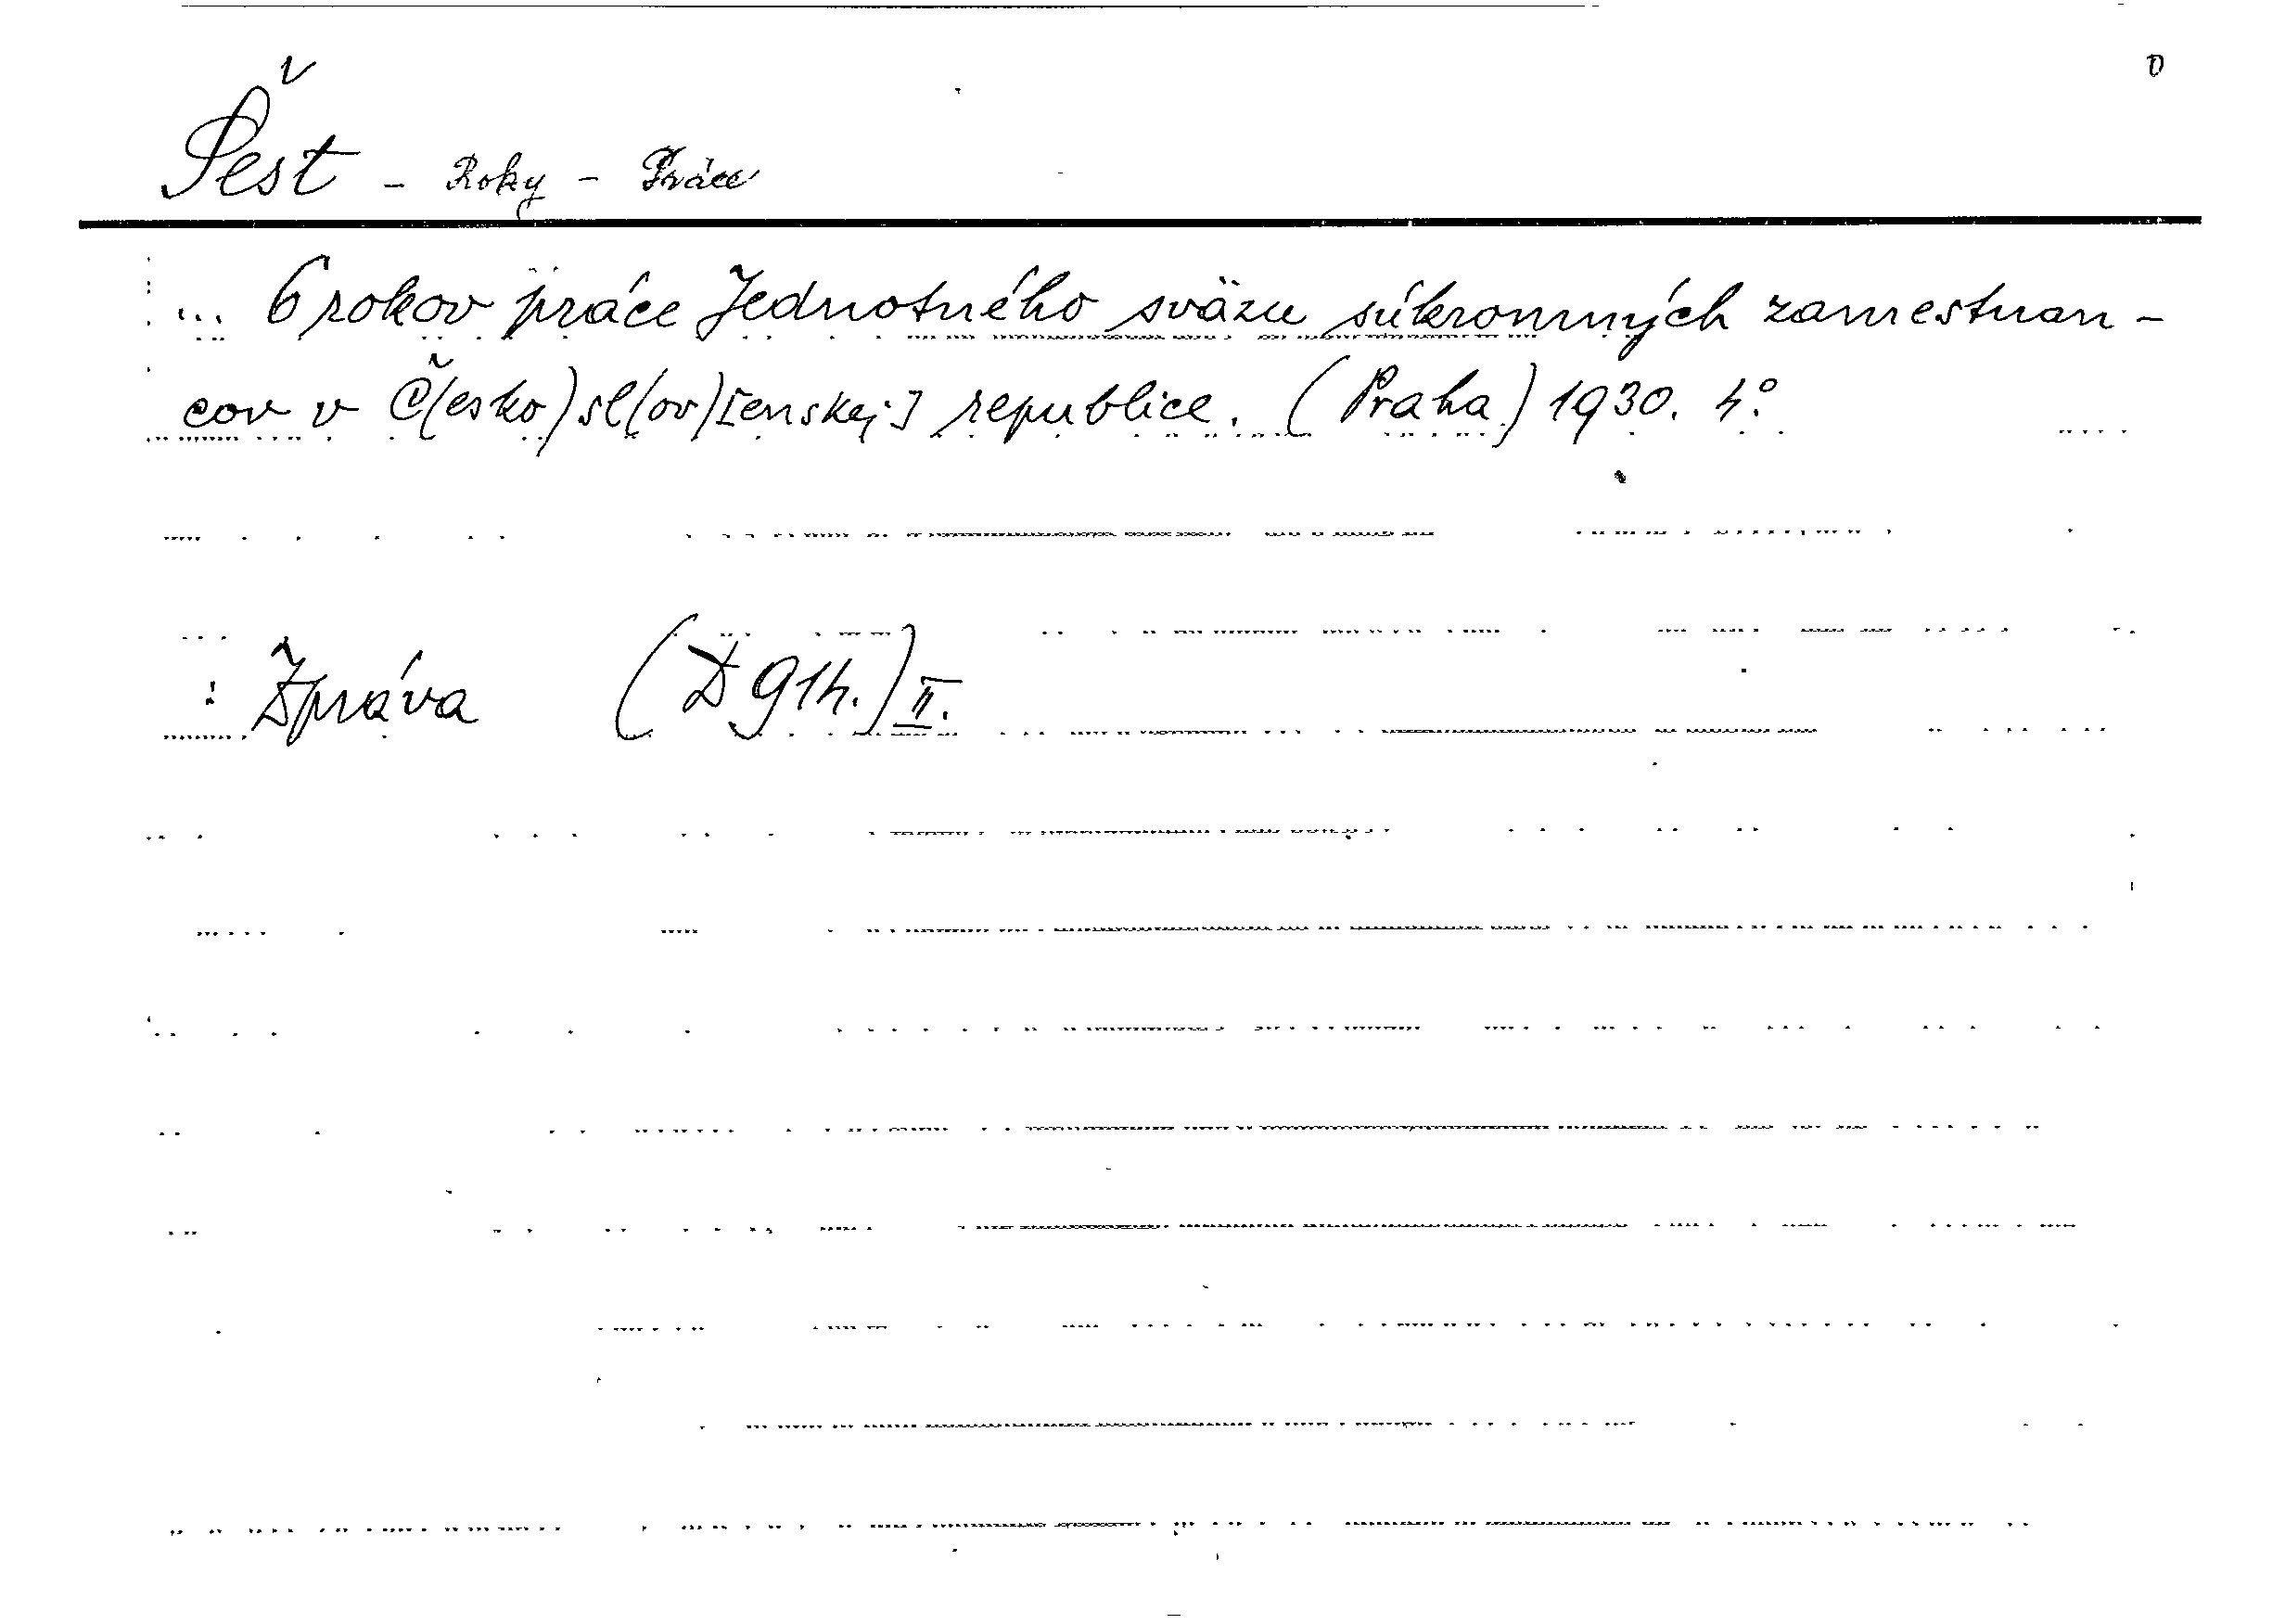 Šest - Roky - Práce
... 6 rokov práce Jednotného sväzu súkromných zamestnan-
cov v Č(esko)sl(ov)[enskej] republice. (Praha) 1930. 4°.
: Zpráva (D 914.) II.